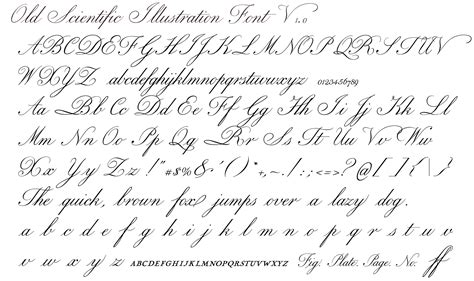 Old Scientific Illustration Font V 1.0
ABCDEFGHIJKLMNOPQRSTUV
WXYZ abcdefghijklmnopqrstuvwxyz 0123456789
Aa Bb Cc Dd Ee Ff Gg Hh Ii Jj Kk Ll
Mm Nn Oo Pp Qq Rr Ss Tt Uu Vv Ww
Xx Yy Zz !"#$%&'()*+,-./:;<=>?@[\]{|}
The quick, brown fox jumps over a lazy dog.
a b c d e f g h i j k l m n o p q r s t u
v w x y z ABCDEFGHIJKLMNOPQRSTUVWXYZ Fig. Plate. Page. No. ff